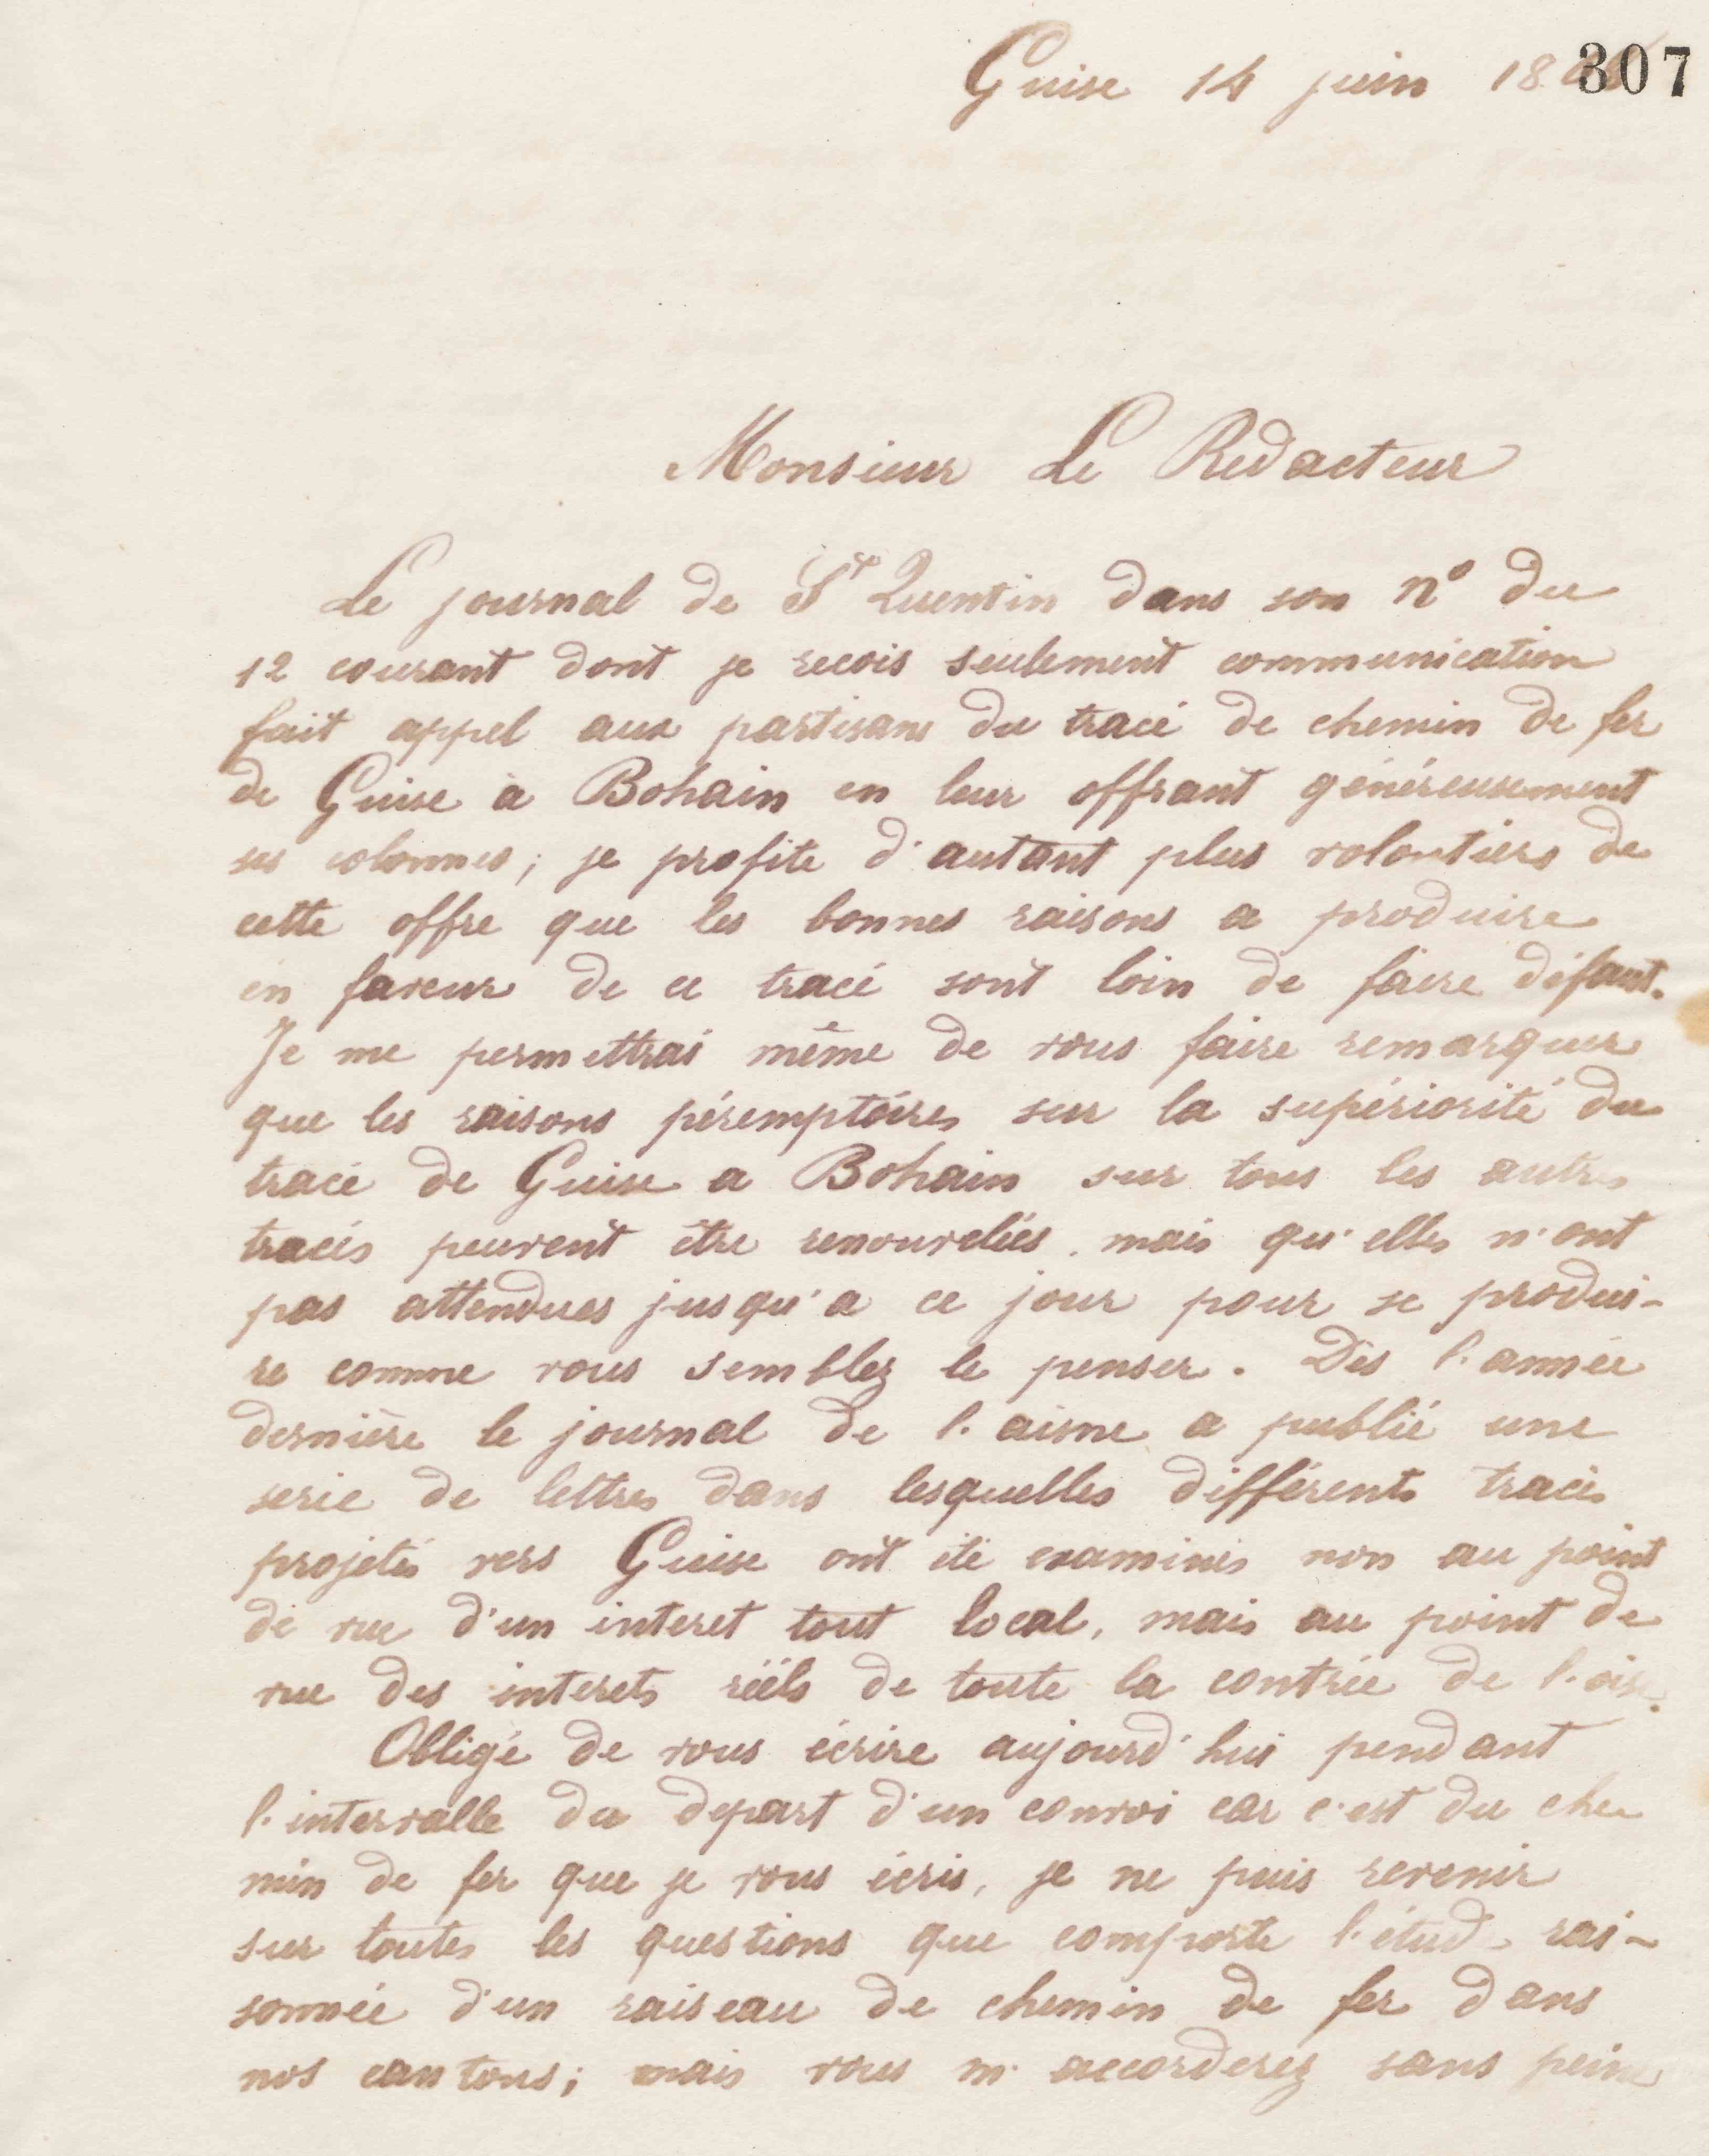 307
Guise 14 juin 18
Monsieur Le Redacteur
Le journal de St Quentin dans son no du
12 courant dont je recois seulement communication
fait appel aux partisans du tracé de chemin de fer
de Guise à Bohain en leur offrant généreusement
ses colonnes; je profite d'autant plus volontiers de
cette offre que les bonnes raisons a produire
en faveur de ce tracé sont loin de faire défaut.
Je me permettrai même de vous faire remarquer
que les raisons péremptoires sur la supériorité du
tracé de Guise a Bohain sur tous les autres
tracés peuvent être renouvelées. mais qu'elles n'ont
pas attendues jusqu'a ce jour pour se produi-
re comme vous semblez le penser. Dès l'année
dernière le journal de l'aisne a publié une
serie de lettres dans lesquelles différents tracés
projetés vers Guise ont été examinés non au point
de vue d'un interet tout local, mais au point de
vue des interets réels de toute la contrée de l'oise.
Obligé de vous écrire aujourd'hui pendant
l'intervalle du depart d'un convoi car c'est du che
min de fer que je vous écris, je ne puis revenir
sur toutes les questions que comporte l'étude rai-
sonnée d'un raiseau de chemin de fer dans
nos cantons; mais vous m'accorderez sans peine